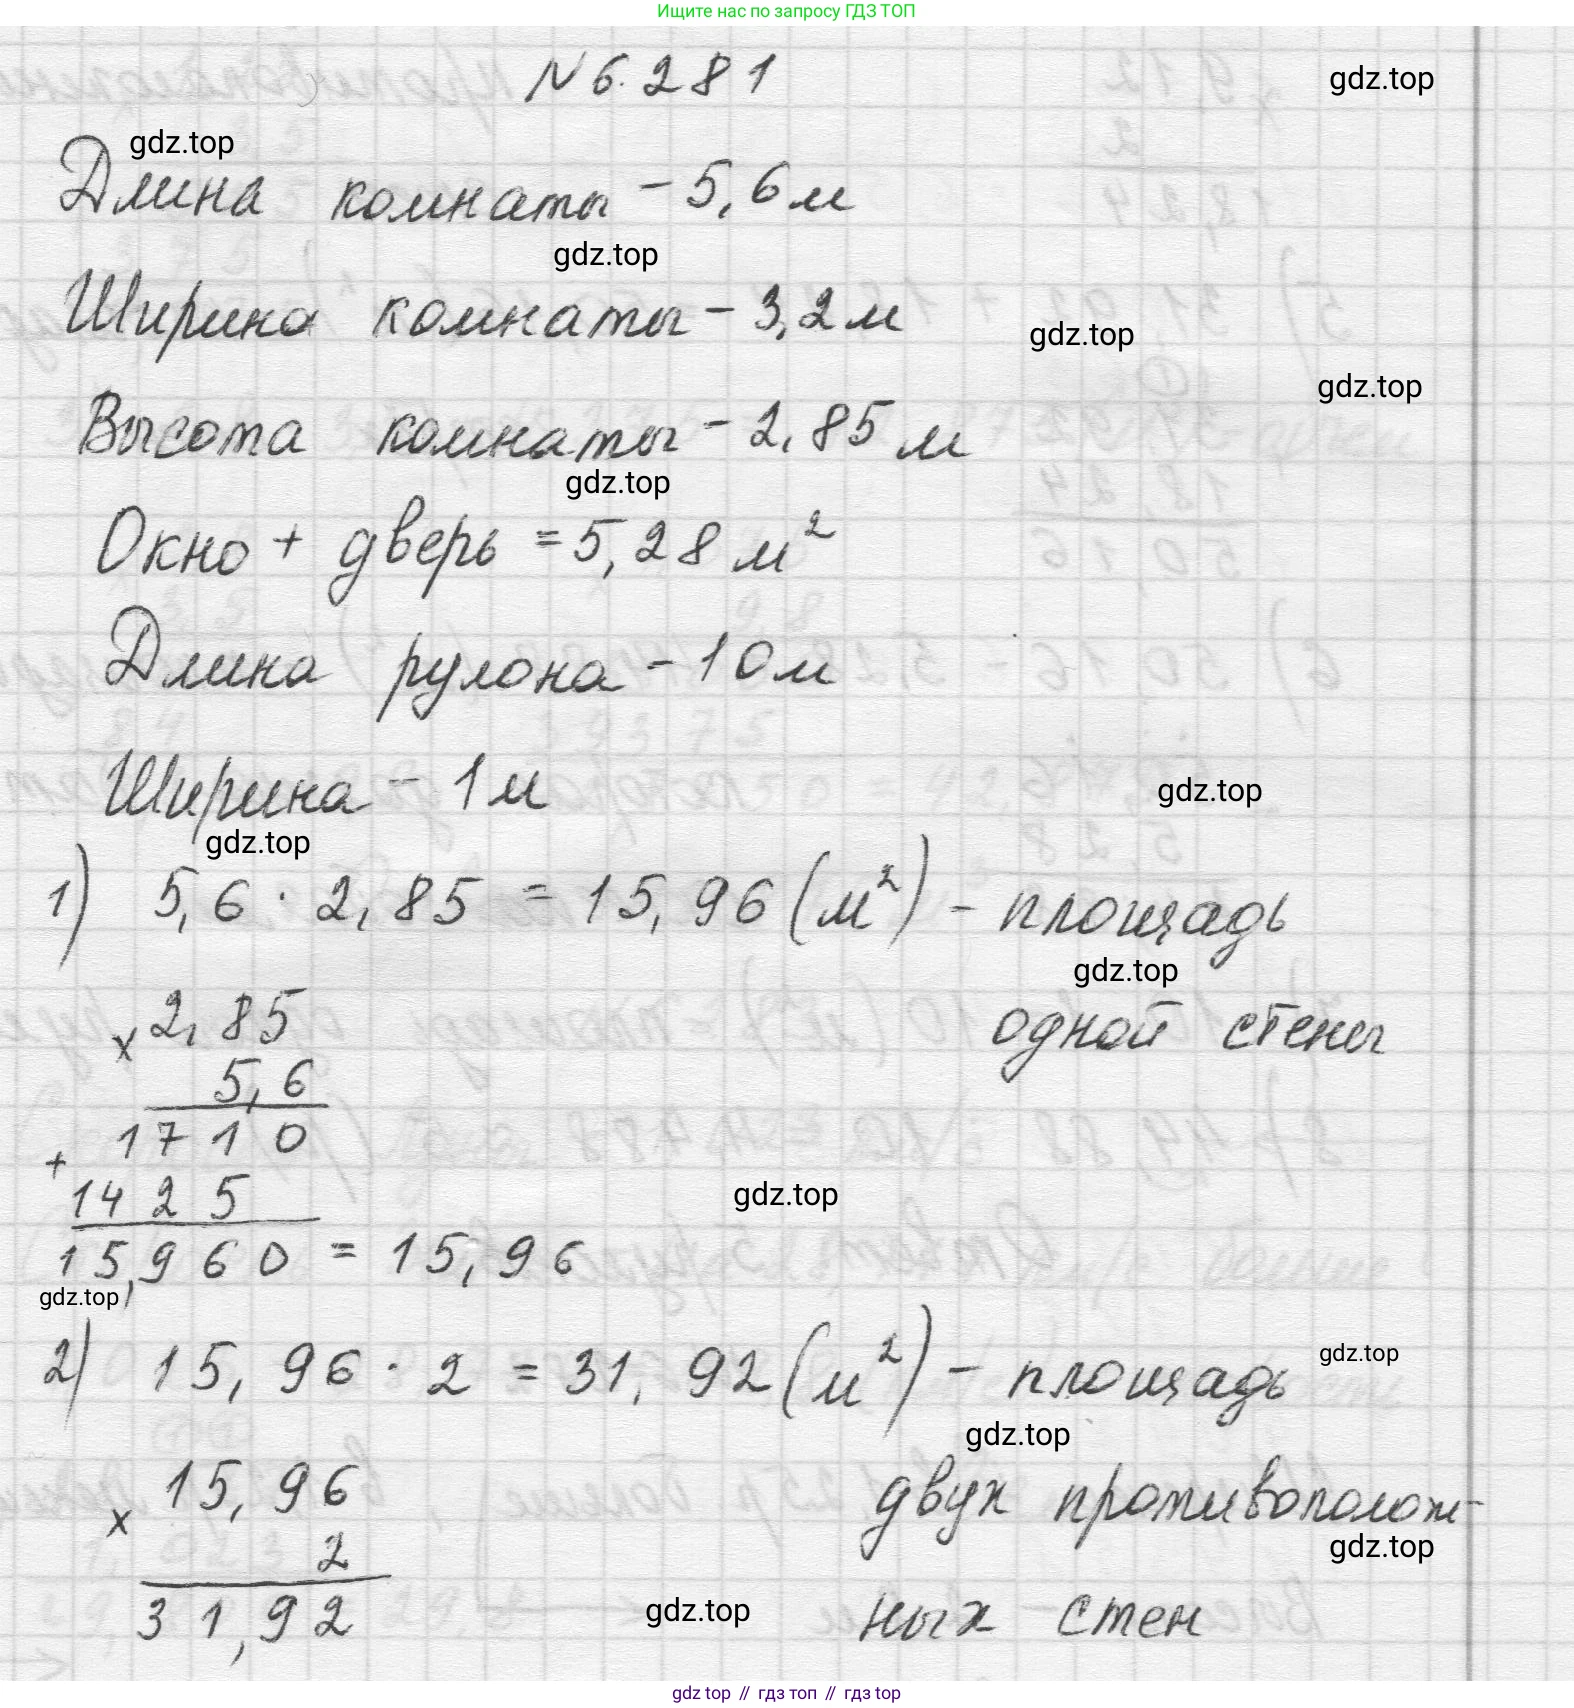 Ищите нас по запросу ГДЗ ТОП
N 6.281
gdz.top
gdz.top
Длина комнаты - 5,6 м
gdz.top
Ширина комнаты - 3,2 м
gdz.top
gdz.top
Высота комнаты - 2,85 м
gdz.top
Окно + дверь = 5,28 м²
Длина рулона - 10 м
Ширина - 1 м
gdz.top
gdz.top
1) 5,6 · 2,85 = 15,96 (м²) - площадь
gdz.top
одной стены
× 2,85
5,6
1710
+
1425
gdz.top
15,960 = 15,96
gdz.top
2) 15,96 · 2 = 31,92 (м²) - площадь
gdz.top
gdz.top
двух противополож-
gdz.top
ных стен
× 15,96
2
31,92
gdz.top
gdz top // гдз топ // гдз top